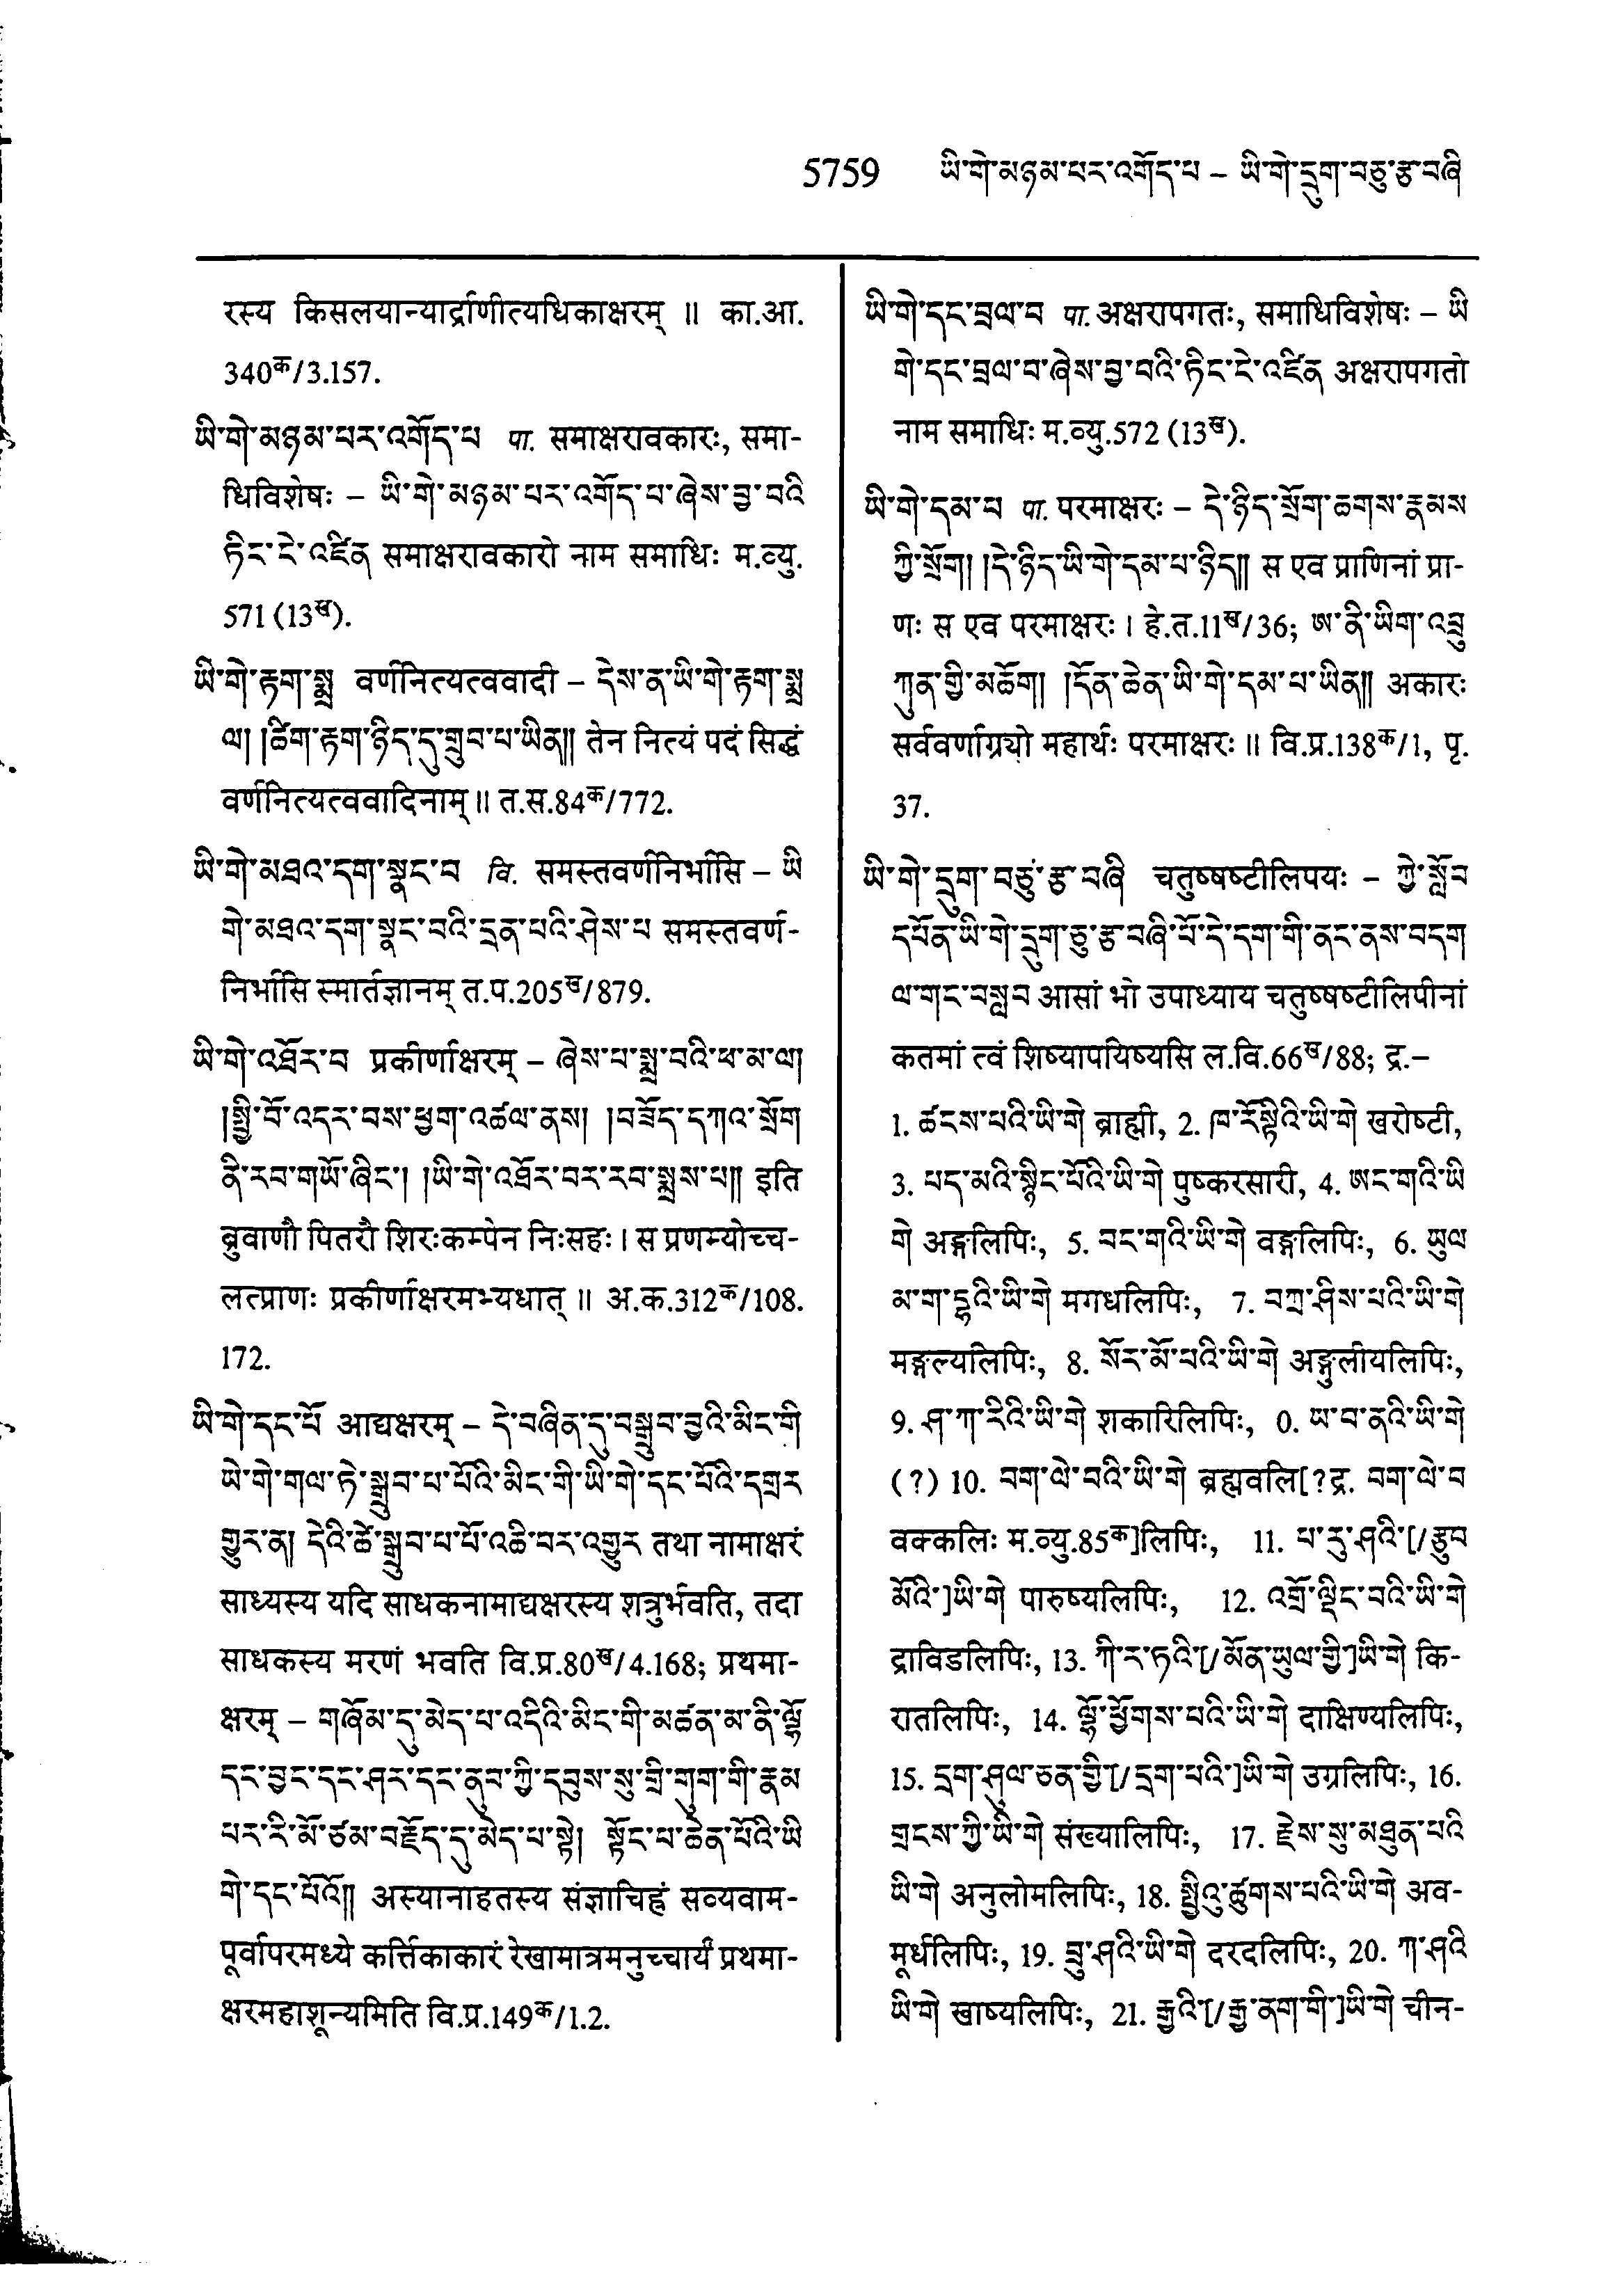 5759 ཡི་གེ་མཉམ་པར་འགོད་པ – ཡི་གེ་དྲུག་བཅུ་རྩ་བཞི
रस्य किसलयान्यार्द्राणीत्यधिकाक्षरम् ॥ का.आ.
340क/3.157.
ཡི་གེ་མཉམ་པར་འགོད་པ पा. समाक्षरावकारः, समा-
धिविशेषः – ཡི་གེ་མཉམ་པར་འགོད་པ་ཞེས་བྱ་བའི
ཏིང་ངེ་འཛིན समाक्षरावकारो नाम समाधिः म.व्यु.
571 (13ख).
ཡི་གེ་རྟག་སྨྲ वर्णनित्यत्ववादी – དེས་ན་ཡི་གེ་རྟག་སྨྲ
ལ། །ཚིག་རྟག་ཉིད་དུ་གྲུབ་པ་ཡིན༎ तेन नित्यं पदं सिद्धं
वर्णनित्यत्ववादिनाम् ॥ त.स.84क/772.
ཡི་གེ་མཐའ་དག་སྣང་བ वि. समस्तवर्णनिर्भासि – ཡི
གེ་མཐའ་དག་སྣང་བའི་དྲན་པའི་ཤེས་པ समस्तवर्ण-
निर्भासि स्मार्तज्ञानम् त.प.205ख/879.
ཡི་གེ་འཐོར་བ प्रकीर्णाक्षरम् – ཞེས་པ་སྨྲ་བའི་ཕ་མ་ལ།
།སྤྱི་བོ་འདར་བས་ཕྱག་འཚལ་ནས། །བཟོད་དཀའ་སྲོག
ནི་རབ་གཡོ་ཞིང་། །ཡི་གེ་འཐོར་བར་རབ་སྨྲས་པ༎ इति
ब्रुवाणौ पितरौ शिरःकम्पेन निःसहः । स प्रणम्योच्च-
लत्प्राणः प्रकीर्णाक्षरमभ्यधात् ॥ अ.क.312क/108.
172.
ཡི་གེ་དང་པོ आद्यक्षरम् – དེ་བཞིན་དུ་བསྒྲུབ་བྱའི་མིང་གི
ཡེ་གེ་གལ་ཏེ་སྒྲུབ་པ་པོའི་མིང་གི་ཡི་གེ་དང་པོའི་དགྲར
གྱུར་ན། དེའི་ཚེ་སྒྲུབ་པ་པོ་འཆི་བར་འགྱུར तथा नामाक्षरं
साध्यस्य यदि साधकनामाद्यक्षरस्य शत्रुर्भवति, तदा
साधकस्य मरणं भवति वि.प्र.80ख/4.168; प्रथमा-
क्षरम् – གཞོམ་དུ་མེད་པ་འདིའི་མིང་གི་མཚན་མ་ནི་ལྷོ
དང་བྱང་དང་ཤར་དང་ནུབ་ཀྱི་དབུས་སུ་གྲི་གུག་གི་རྣམ
པར་རི་མོ་ཙམ་བརྗོད་དུ་མེད་པ་སྟེ། སྟོང་པ་ཆེན་པོའི་ཡི
གེ་དང་པོའོ༎ अस्यानाहतस्य संज्ञाचिह्नं सव्यवाम-
पूर्वापरमध्ये कर्त्तिकाकारं रेखामात्रमनुच्चार्यं प्रथमा-
क्षरमहाशून्यमिति वि.प्र.149क/1.2.
ཡི་གེ་དང་བྲལ་བ पा. अक्षरापगतः, समाधिविशेषः – ཡི
གེ་དང་བྲལ་བ་ཞེས་བྱ་བའི་ཏིང་ངེ་འཛིན अक्षरापगतो
नाम समाधिः म.व्यु.572 (13ख).
ཡི་གེ་དམ་པ पा. परमाक्षरः – དེ་ཉིད་སྲོག་ཆགས་རྣམས
ཀྱི་སྲོག། །དེ་ཉིད་ཡི་གེ་དམ་པ་ཉིད༎ स एव प्राणिनां प्रा-
णः स एव परमाक्षरः । हे.त.11ख/36; ཨ་ནི་ཡིག་འབྲུ
ཀུན་གྱི་མཆོག། །དོན་ཆེན་ཡི་གེ་དམ་པ་ཡིན༎ अकारः
सर्ववर्णाग्र्यो महार्थः परमाक्षरः ॥ वि.प्र.138क/1, पृ.
37.
ཡི་གེ་དྲུག་བཅུ་རྩ་བཞི चतुष्षष्टीलिपयः – ཀྱེ་སློབ
དཔོན་ཡི་གེ་དྲུག་ཅུ་རྩ་བཞི་པོ་དེ་དག་གི་ནང་ནས་བདག
ལ་གང་བསླབ आसां भो उपाध्याय चतुष्षष्टीलिपीनां
कतमां त्वं शिष्यापयिष्यसि ल.वि.66ख/88; द्र.–
1. ཚངས་པའི་ཡི་གེ ब्राह्मी, 2. ཁ་རོསྟིའི་ཡི་གེ खरोष्टी,
3. པད་མའི་སྙིང་པོའི་ཡི་གེ पुष्करसारी, 4. ཨང་གའི་ཡི
གེ अङ्गलिपिः, 5. བང་གའི་ཡི་གེ वङ्गलिपिः, 6. ཡུལ
མ་ག་དྷའི་ཡི་གེ मगधलिपिः, 7. བཀྲ་ཤིས་པའི་ཡི་གེ
मङ्गल्यलिपिः, 8. སོར་མོ་པའི་ཡི་གེ अङ्गुलीयलिपिः,
9. ཤ་ཀ་རིའི་ཡི་གེ शकारिलिपिः, 0. ཡ་བ་ནའི་ཡི་གེ
(?) 10. བག་ལེ་བའི་ཡི་གེ ब्रह्मवलि[?द्र. བག་ལེ་བ
वक्कलिः म.व्यु.85क]लिपिः, 11. པ་རུ་ཤའི་[/རྩུབ
མོའི་]ཡི་གེ पारुष्यलिपिः, 12. འགྲོ་ལྡིང་བའི་ཡི་གེ
द्राविडलिपिः, 13. ཀི་ར་ཏའི་[/མོན་ཡུལ་གྱི་]ཡི་གེ कि-
रातलिपिः, 14. ལྷོ་ཕྱོགས་པའི་ཡི་གེ दाक्षिण्यलिपिः,
15. དྲག་ཤུལ་ཅན་གྱི་[/དྲག་པའི་]ཡི་གེ उग्रलिपिः, 16.
གྲངས་ཀྱི་ཡི་གེ संख्यालिपिः, 17. རྗེས་སུ་མཐུན་པའི
ཡི་གེ अनुलोमलिपिः, 18. སྤྱིའུ་ཚུགས་པའི་ཡི་གེ अव-
मूर्धलिपिः, 19. བྲུ་ཤའི་ཡི་གེ दरदलिपिः, 20. ཀ་ཤའི
ཡི་གེ खाष्यलिपिः, 21. རྒྱའི་[/རྒྱ་ནག་གི་]ཡི་གེ चीन-